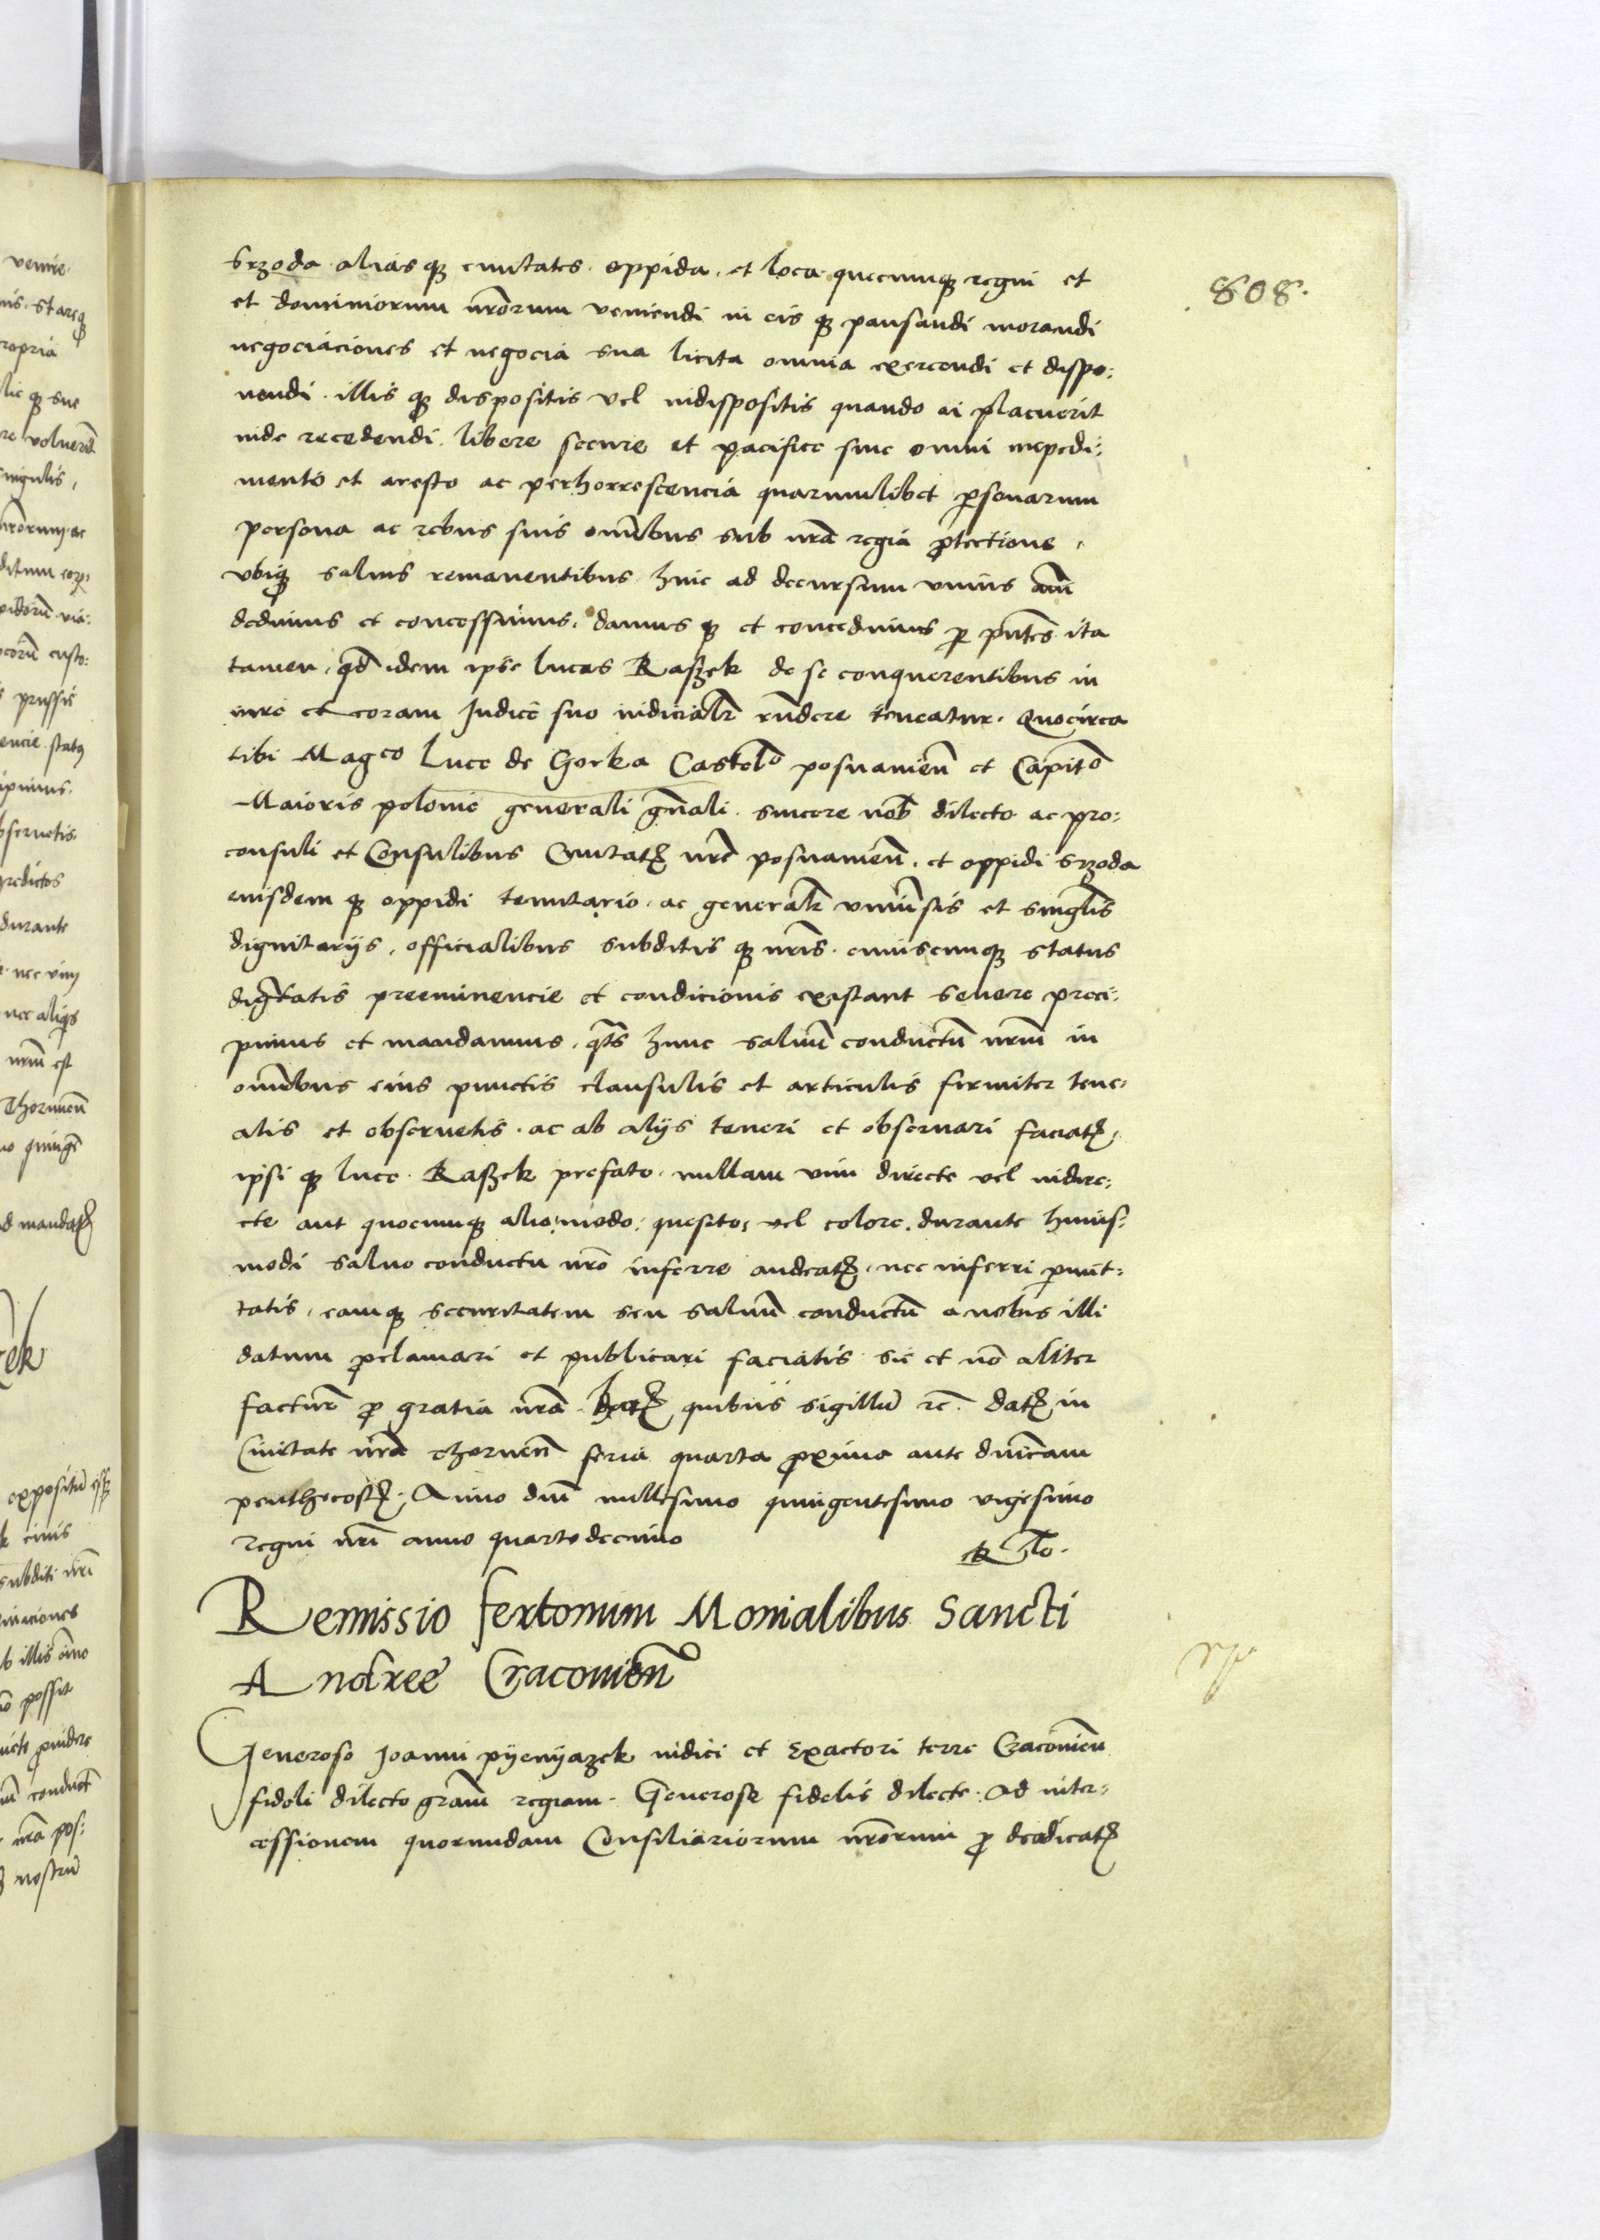 808.
Srzoda alias q̨ ciuitates oppida et loca quecumq̨ regni et
et dominiorum nrorum veniendi in eis q̨ pausandi morandi
negociaciones et negocia sua licita omnia exercendi et dispo:
nendi illis q̨ dispositis vel indispositis quando ei placuerit
inde recedendi libere secure et pacifice sine omni impedi:
mento et aresto ac perhorrescencia quarumlibet psonarum
persona ac rebus suis omibus sub nra regia ptectione
vbiq̨ saluis remanentibus hinc ad decursum vnius anni
dedimus et concessimus damus q̨ et concedimus p pntes ita
tamen qd idem ipse lucas Raszek de se conquerentibus in
iure et coram Judice suo iudicialr rndere teneatur. Quocirca
tibi Magco Luce de Gorka Castello posnanien et Capito
Maioris polonie generali gnali sincere nob dilecto ac pro:
consuli et Consulibus Ciuitatꝭ nre posnanien. et oppidi Srzoda
eiusdem q̨ oppidi tenutario ac generalr vniusis et singlis
dignitarijs, officialibus subditis q̨ nris cuiuscumq̨ status
digtatis preeminencie et condicionis existant seuere preci:
pimus et mandamus, qts hunc saluu conductu nrm in
omibus eius punctis clausulis et articulis firmiter tene:
atis et obseruetis. ac ab alijs teneri et obseruari faciatꝭ
ipsi q̨ luce Raszek prefato nullam vim directe vel indire:
cte aut quocumq̨ alio modo quesito vel colore durante huius:
modi saluo conductu nro inferre audeatꝭ nec inferri pmit:
tatis, eamq̨ securitatem seu saluu conductu a nobis illi
datum pclamari et publicari faciatis sic et no aliter
factur p gratia nra. quibus sigillu rc. datꝭ in
Ciuitate nra thorunen feria quarta pxima ante dnicam
penthecostꝭ Anno dni millesimo quingentesimo vigesimo
regni nri anno quartodecimo
Remissio fertonum Monialibus Sancti
Andree Cracouien
Generoso Joanni pyenyazek iudici et Exactori terre Cracouien
fideli dilecto gram regiam. Generose fidelis dilecte. Ad inter:
cessionem quorundam Consiliariorum nrorum p dedicatꝭ